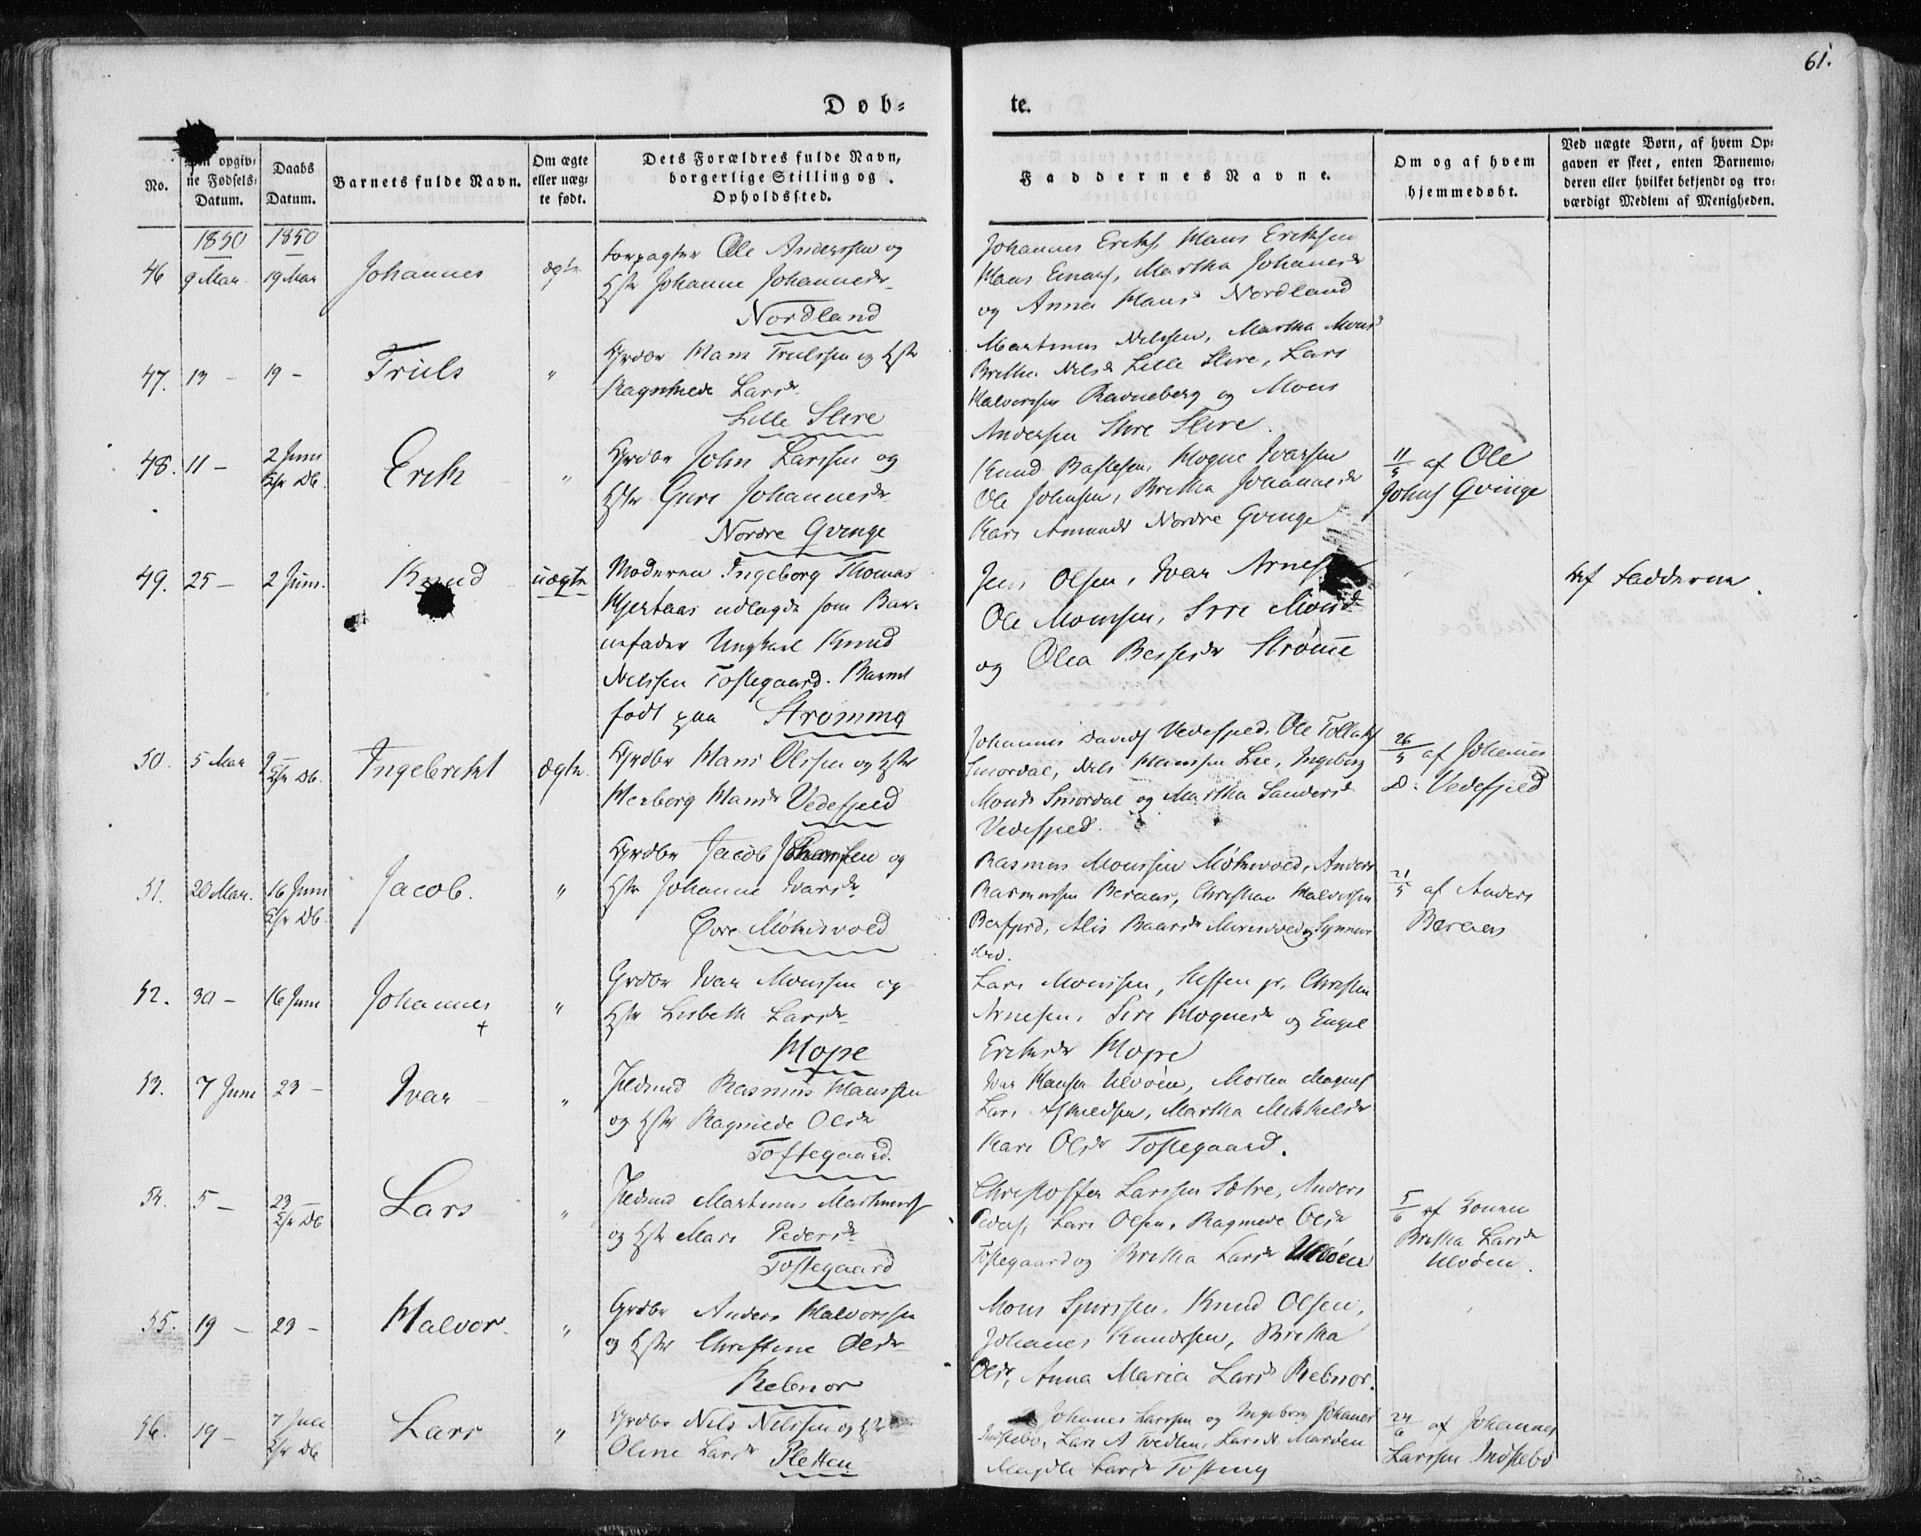 61.
Døb-
te.
No.
Den opgiv-
ne Fødsels-
Datum.
Daabs
Datum.
Barnets fulde Navn.
Om ægte
eller uæg-
te født.
Dets Forældres fulde Navn,
borgerlige Stilling og
Opholdssted.
Faddernes Navne.
Om og af hvem
hjemmedøbt.
Ved uægte Børn, af hvem Op-
gaven er skeet, enten Barnemo-
deren eller hvilket bekjendt og tro-
værdigt Medlem af Menigheden.
1850 1850
46 9 Mai 19 Mai Johannes ægte
Forpagter Ole Anderssen og
Hst Johanne Johannesdr
Nordland
Johannes Eriks, Hans Eriksen
Hans Einars, Martha Johanesdr
og Anna Hansd Nordland
47. 13 - 19 - Truls "
Grdbr Hans Trulssen og Hst
Ragnhilde Larsdr
Lille Skre
Martinus Nilssen, Martha Monsd
Britha Nilsdr Lille Skre, Lars
Halvorsen Ravneberg og Mons
Andersen Store Skre.
48. 11 - 2 Juni Erik "
Grdbr John Larssen og
Hst Guri Johannesdr
Nordre Qvinge
Ole Johnsen, Britha Johannesdr
Kari Amundsd Nordre Qvinge
11/5 af Ole
Johns Qvinge
49. 25 - 2 Juni. Knud uægte
Moderen Ingeborg Thomas
Hjertaas udlagde som Bar-
nefader Ungkarl Knud
Nilssen Toftegaard. Barnet
født paa Strømme
Jens Olsen, Ivar Arnes
Ole Monssen, Siri Monsd
og Olea Bessesdr Strømme
Af Fadderne.
50. 5 Mai 9 - Ingebrikt ægte.
Grdbr Hans Olssen og Hst
Herborg Hansdr Vedefjeld
Johannes Davids Vedefjeld, Ole Tollaks
Smørdal, Nils Hanssen Lie, Ingeborg
Monsd Smørdal og Martha Sandersdr
Vedefjeld.
26/5 af Johannes
D. Vedefjeld
51. 20 Mai. 16 Juni Jacob. "
Grdbr Jacob Johannssen og
Hst Johanne Ivarsdr
Øvre Møhusvold
Rasmus Monssen Møhusvold, Anders
Rasmussen Beraas, Christian Halvorsen
21/5 af Anders
Beraas
52. 30 - 16 Juni Johannes "
Grdbr Ivar Monssen og
Hst Lisbeth Larsdr
Hope
Lars Monssen, Steffen P, Christen
Arnesen, Siri Mognesdr og Engel
Eriksdr Hope
53. 7 Juni 23 - Ivar "
Huusmd Rasmus Hanssen
og Hst Ragnilde Olsdr
Toftegaard.
Ivar Hansen Ulvøen, Morten Magnus
Kari Olsdr Toftegaard.
54. 5 - 23 Lars "
Huusmd Martinus Martinus
og Hst Mari Pedersdr
Toftegaard
Christoffer Larssen Sætre, Anders
Peders, Lars Olsen, Ragnilde Olsdr
Toftegaard og Britha Larsdr Ulvøen
5/6 af Konen
Britha Larsdr
Ulvøen.
55. 19 - 23 - Halvor. "
Grdbr Anders Halvorssen
og Hst Christine Olsdr
Rebnor
Mons Sjurssen, Knud Olsen,
Johanes Knudssen, Britha
Olsdr, Anna Maria Larsd Rebnor.
56. 19 - 7 Juli Lars "
Grdbr Nils Nilssen og Hst
Oline Larsdr Pletten
Johanes Larssen og Ingeborg Johanes
Indstebø, Lars A Tvedten, Larsdr Marøen
Larsdr Tosteng
24/6 af Johannes
Larssen Indstebø